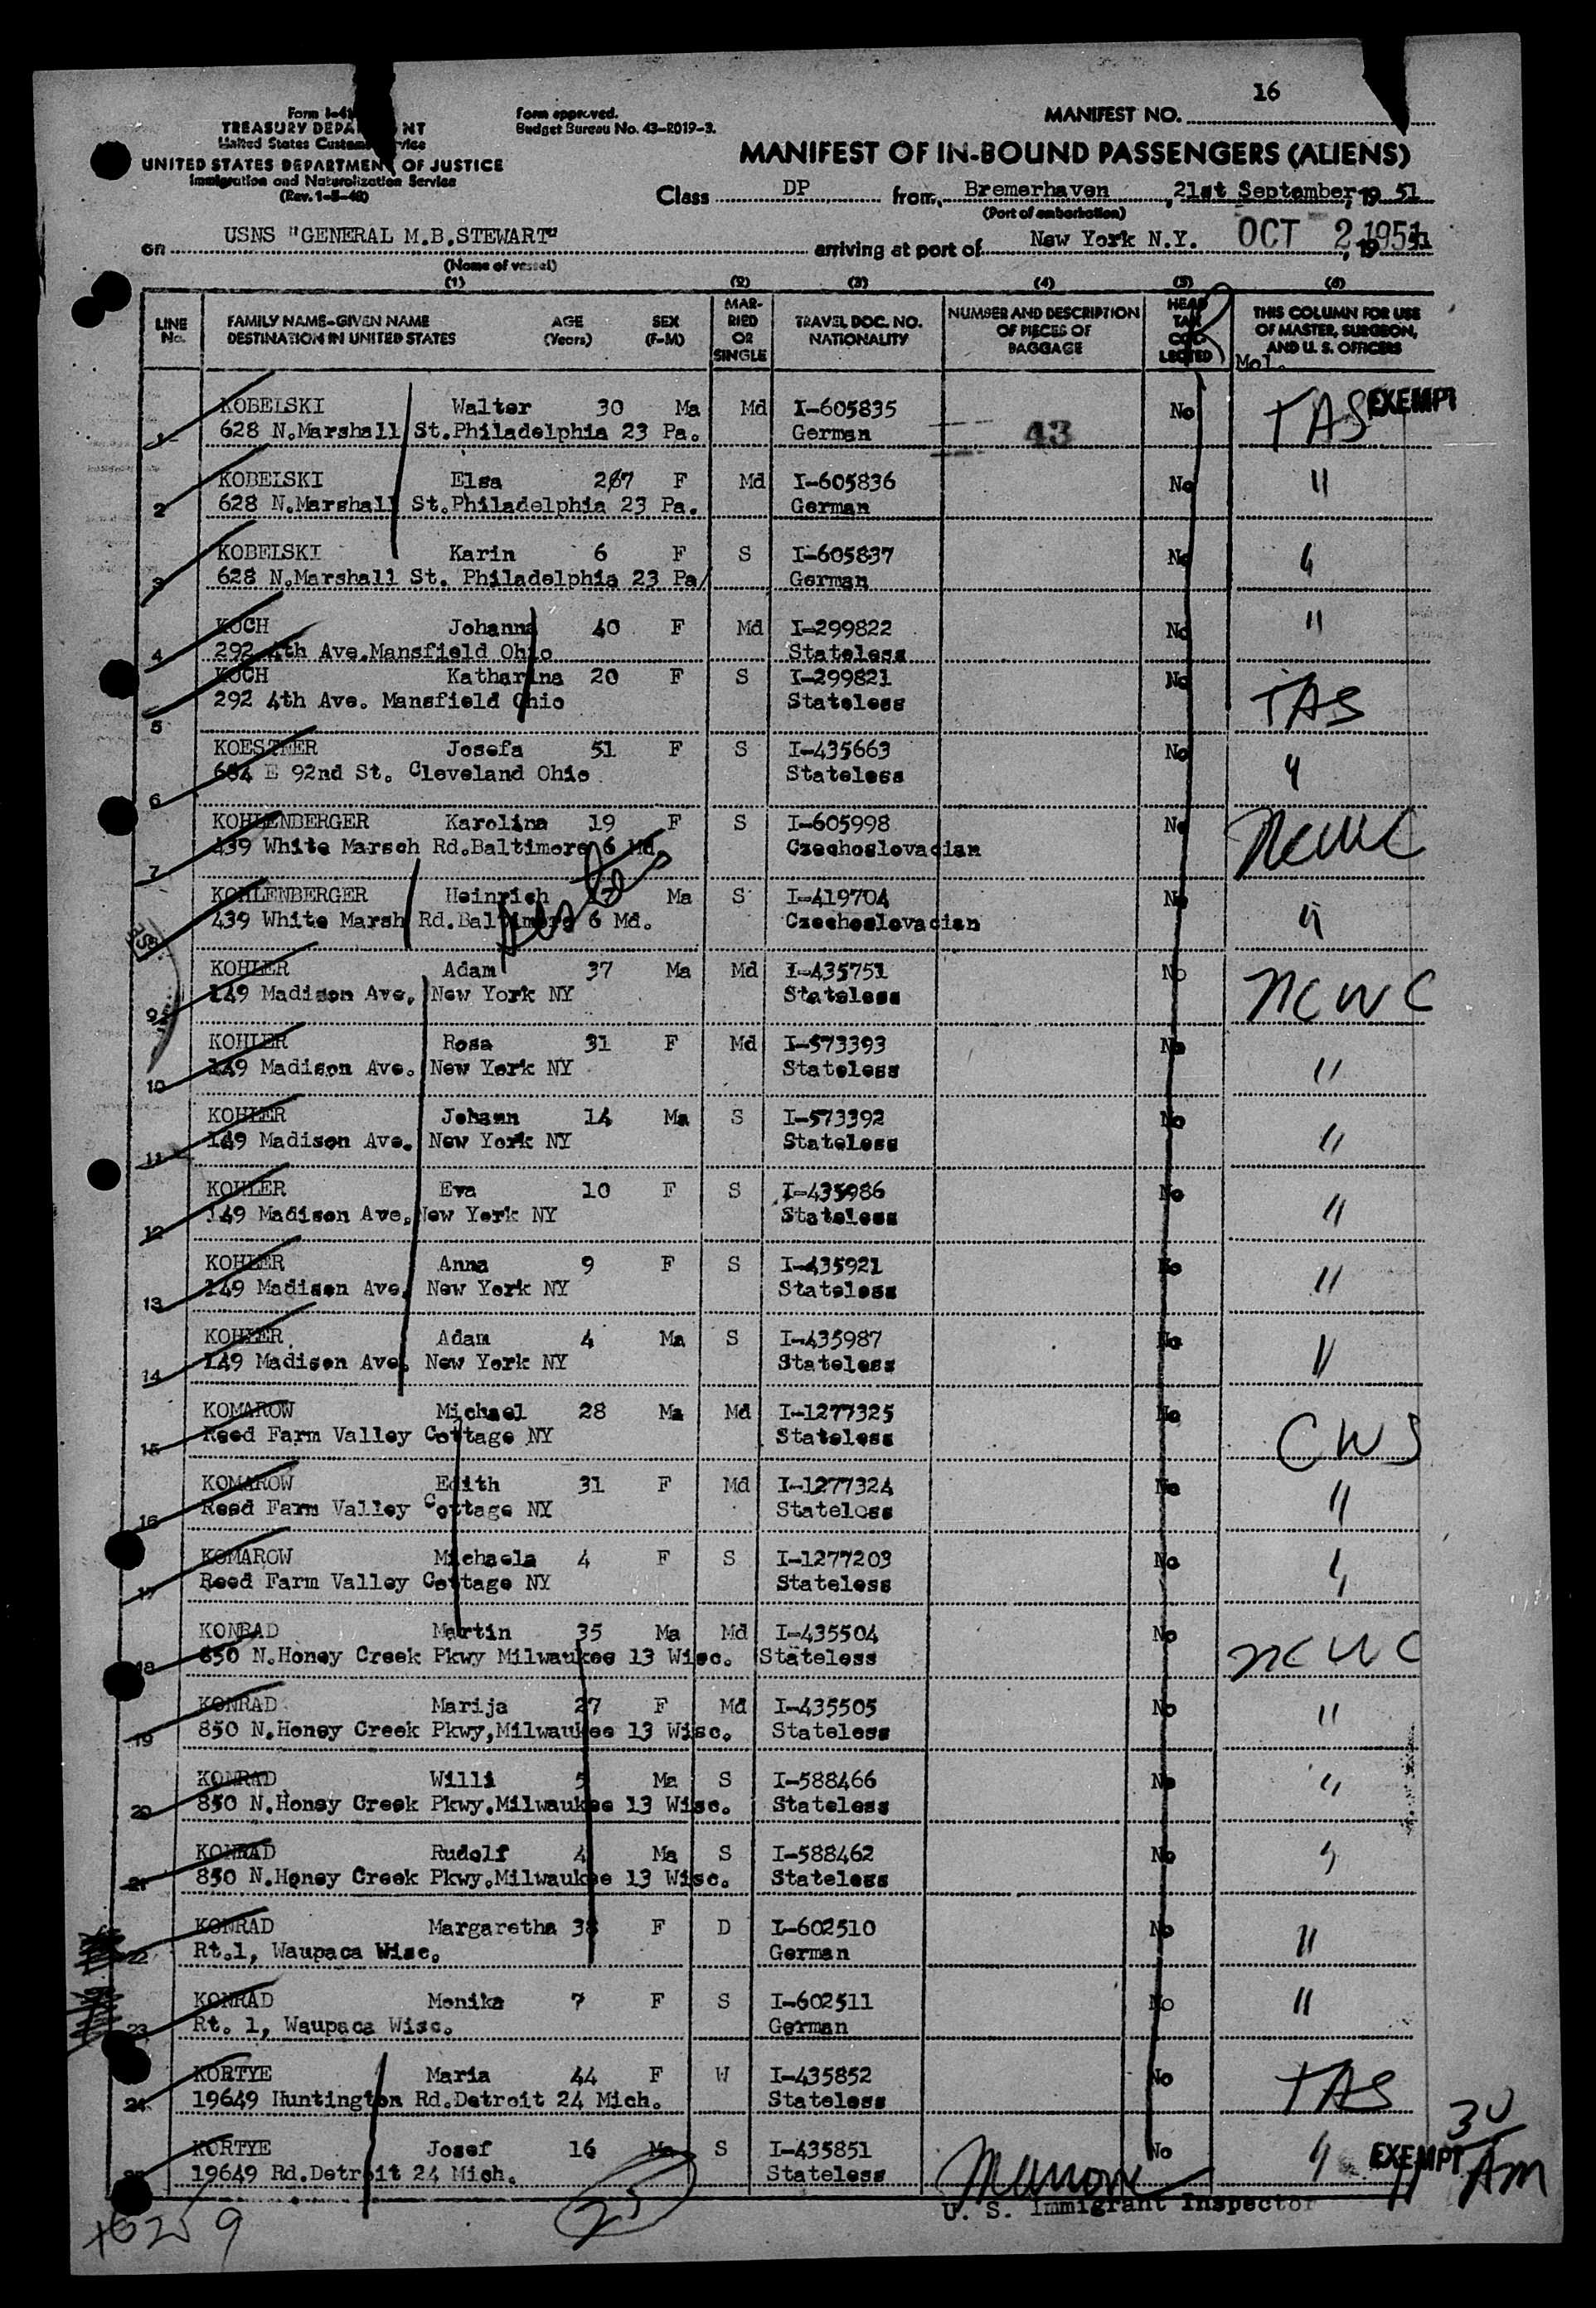 16
Form I-41
TREASURY DEPA NT
United States Customs Service
UNITED STATES DEPARTMENT OF JUSTICE
Immigration and Naturalization Service
(Rev. 1-5-49)
Form approved.
Budget Bureau No. 43-R019-3.
MANIFEST NO.
MANIFEST OF IN-BOUND PASSENGERS (ALIENS)
Class DP from, Bremerhaven, 21st September, 19 51
(Port of embarkation)
on USNS "GENERAL M.B.STEWART" arriving at port of New York N.Y. OCT 2 1951, 19 51
(Name of vessel)
(1) (2) (3) (4) (5) (6)
LINE No.
FAMILY NAME-GIVEN NAME AGE SEX
DESTINATION IN UNITED STATES (Years) (F-M)
MAR-
RIED
OR
SINGLE
TRAVEL DOC. NO.
NATIONALITY
NUMBER AND DESCRIPTION
OF PIECES OF
BAGGAGE
HEAD
TAX
COL-
LECTED
THIS COLUMN FOR USE
OF MASTER, SURGEON,
AND U. S. OFFICERS
Mol.
1 KOBELSKI Walter 30 Ma Md I-605835 No TAS EXEMPT
628 N.Marshall St.Philadelphia 23 Pa. German 43
2 KOBELSKI Elsa 267 F Md I-605836 No "
628 N.Marshall St.Philadelphia 23 Pa. German
3 KOBELSKI Karin 6 F S I-605837 No "
628 N.Marshall St. Philadelphia 23 Pa/ German
4 KOCH Johanna 40 F Md I-299822 No "
292 4th Ave.Mansfield Ohio Stateless
5 KOCH Katharina 20 F S I-299821 No TAS
292 4th Ave. Mansfield Ohio Stateless
6 KOESTNER Josefa 51 F S I-435663 No "
664 E 92nd St. Cleveland Ohio Stateless
7 KOHLENBERGER Karolina 19 F S I-605998 No NCWC
439 White Marsch Rd.Baltimore 6 Md. Czechoslovacian
KOHLENBERGER Heinrich Ma S I-419704 No "
439 White Marsh Rd.Baltimore 6 Md. Czechoslovacian
9 KOHLER Adam 37 Ma Md I-435751 No NCWC
149 Madison Ave. New York NY Stateless
10 KOHLER Rosa 31 F Md I-573393 No "
149 Madison Ave. New York NY Stateless
11 KOHLER Johann 14 Ma S I-573392 No "
149 Madison Ave. New York NY Stateless
12 KOHLER Eva 10 F S I-435986 No "
149 Madison Ave.New York NY Stateless
13 KOHLER Anna 9 F S I-435921 No "
149 Madison Ave. New York NY Stateless
14 KOHLER Adam 4 Ma S I-435987 No "
149 Madison Ave. New York NY Stateless
15 KOMAROW Michael 28 Ma Md I-1277325 No CWS
Reed Farm Valley Cottage NY Stateless
16 KOMAROW Edith 31 F Md I-1277324 No "
Reed Farm Valley Cottage NY Stateless
17 KOMAROW Michaela 4 F S I-1277203 No "
Reed Farm Valley Cottage NY Stateless
18 KONRAD Martin 35 Ma Md I-435504 No NCWC
850 N.Honey Creek Pkwy Milwaukee 13 Wisc. Stateless
19 KONRAD Marija 27 F Md I-435505 No "
850 N.Honey Creek Pkwy,Milwaukee 13 Wisc. Stateless
20 KONRAD Willi 5 Ma S I-588466 No "
850 N.Honey Creek Pkwy.Milwaukee 13 Wisc. Stateless
21 KONRAD Rudolf 4 Ma S I-588462 No "
850 N.Honey Creek Pkwy.Milwaukee 13 Wisc. Stateless
22 KONRAD Margaretha 38 F D I-602510 No "
Rt.1, Waupaca Wisc. German
23 KONRAD Monika 7 F S I-602511 No "
Rt. 1, Waupaca Wisc. German
24 KORTYE Maria 44 F W I-435852 No TAS
19649 Huntington Rd.Detroit 24 Mich. Stateless
25 KORTYE Josef 16 Ma S I-435851 No " EXEMPT
19649 Rd.Detroit 24 Mich. Stateless
30
AM
25
U. S. Immigrant Inspector